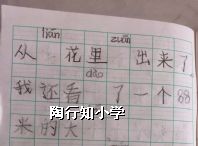 lián zuān
从 花里 出来了
dào
我还看 了一个88
陶行知小学
米的大